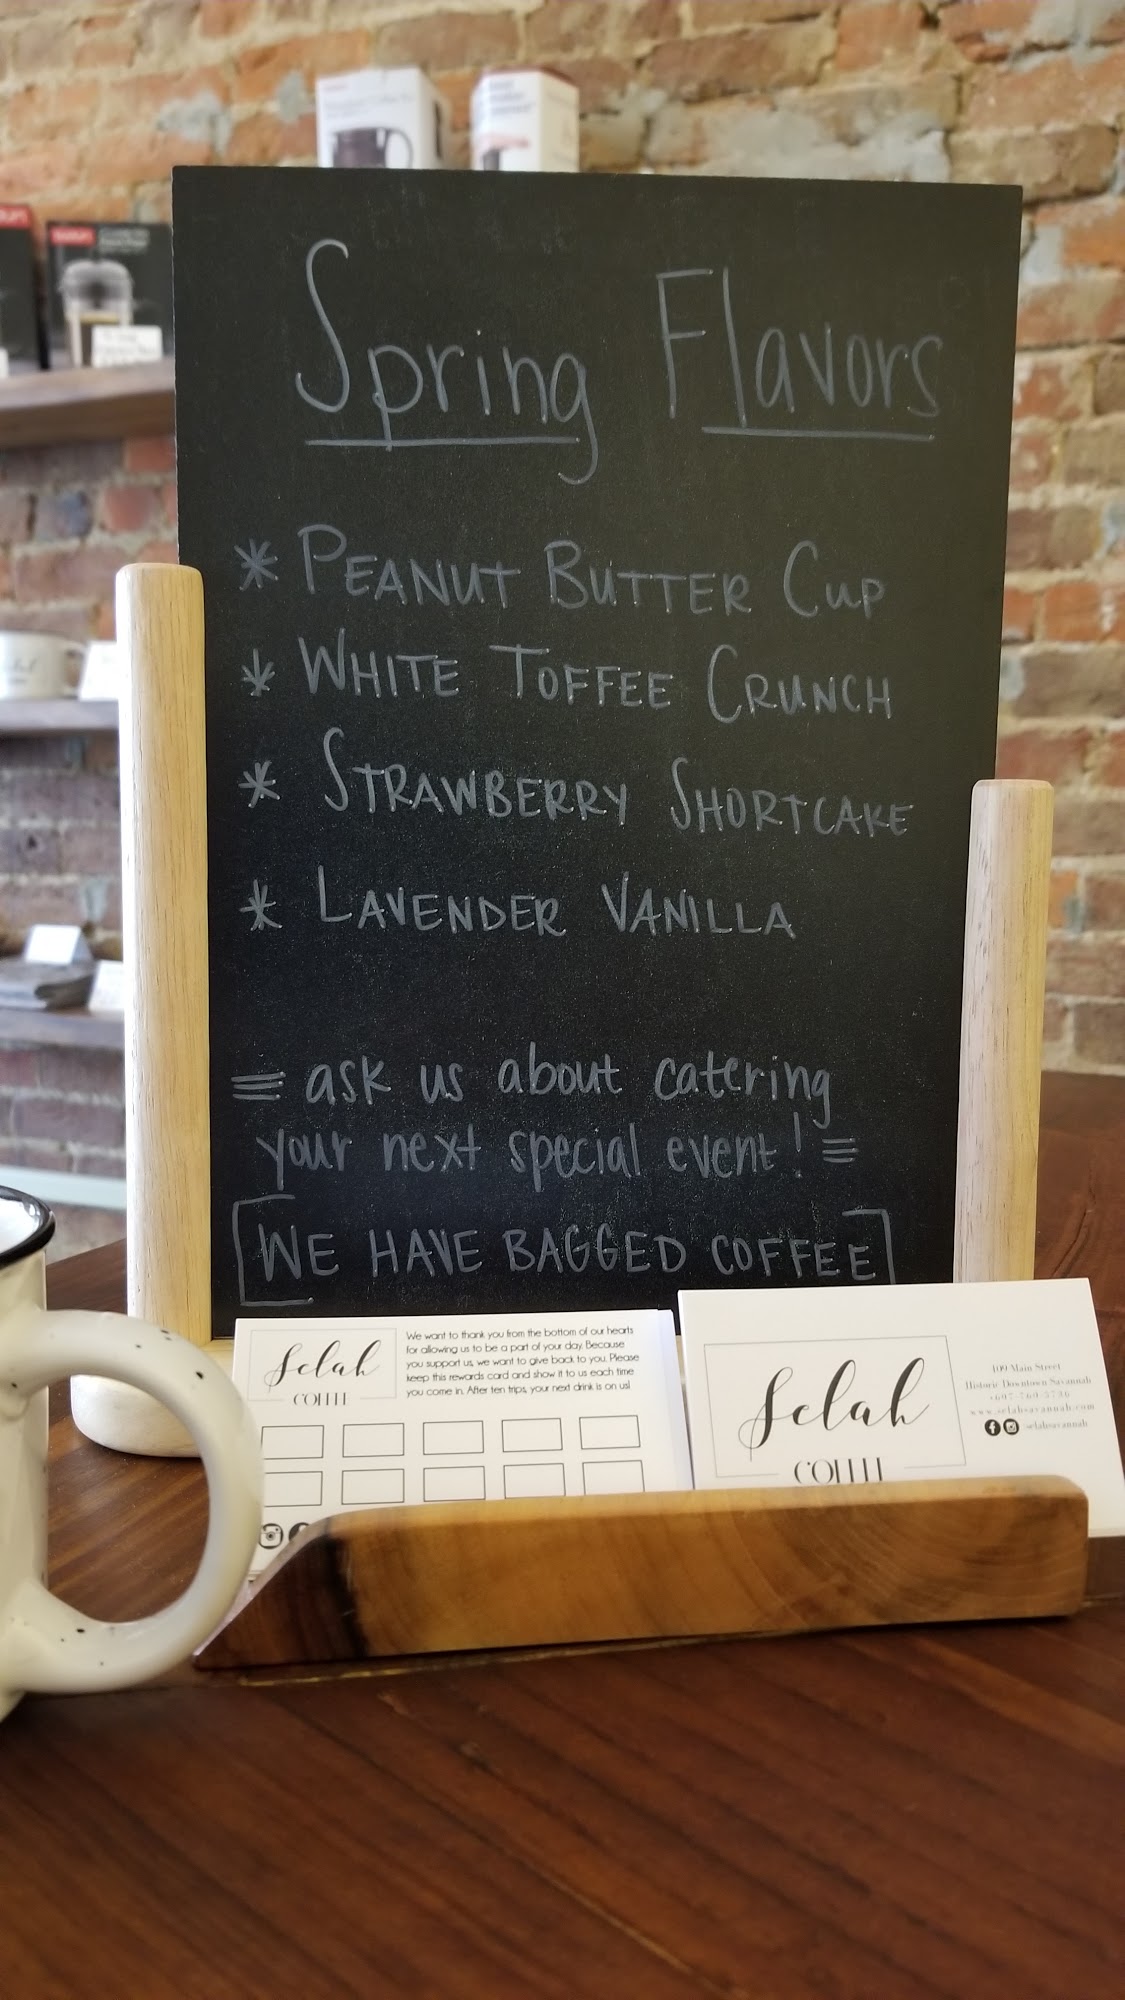 Spring Flavors
* PEANUT BUTTER CUP
* WHITE TOFFEE CRUNCH
* STRAWBERRY SHORTCAKE
* LAVENDER VANILLA
ask us about catering
your next special event!
[WE HAVE BAGGED COFFEE]
Selah
COFFEE
We want to thank you from the bottom of our hearts
for allowing us to be a part of your day. Because
you support us, we want to give back to you. Please
keep this rewards card and show it to us each time
you come in. After ten trips, your next drink is on us!
Selah
COFFEE
409 Main Street
Historic Downtown Savannah
www.selahsavannah.com
selahsavannah